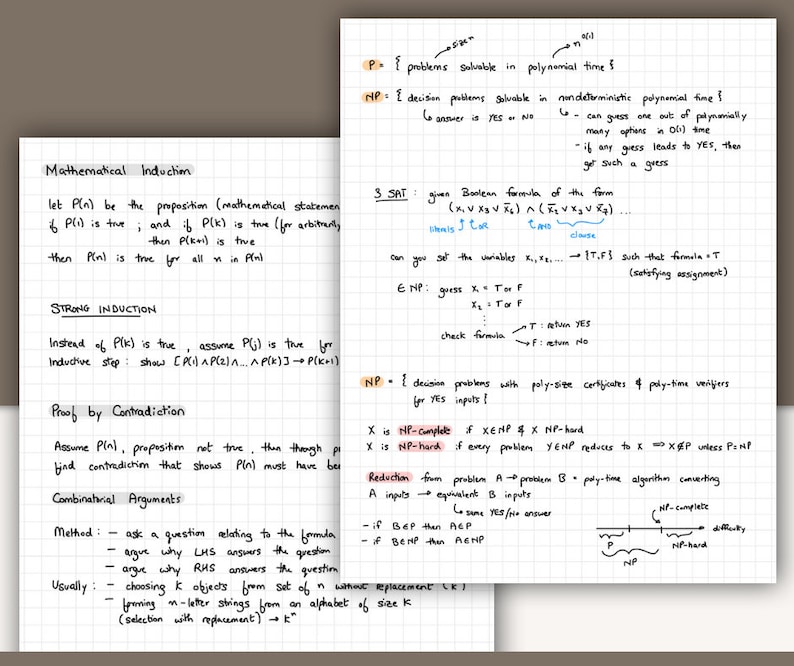 Mathematical Induction
let P(n) be the proposition (mathematical statemen
if P(1) is true ; and if P(k) is true (for arbitrarily
then P(k+1) is true
then P(n) is true for all n in P(n)
STRONG INDUCTION
Instead of P(k) is true , assume P(j) is true for
Inductive step : show [P(1) ∧ P(2) ∧ ... ∧ P(k)] → P(k+1)
Proof by Contradiction
Assume P(n), proposition not true , then through p
find contradiction that shows P(n) must have be
Combinatorial Arguments
Method : – ask a question relating to the formula
– argue why LHS answers the question
– argue why RHS answers the question
Usually : – choosing k objects from set of n without replacement
– forming n-letter strings from an alphabet of size k
(selection with replacement) → kⁿ
sizeⁿ
n^O(1)
P = { problems solvable in polynomial time }
NP = { decision problems solvable in nondeterministic polynomial time }
↳ answer is YES or NO ↳ - can guess one out of polynomially
many options in O(1) time
- if any guess leads to YES, then
get such a guess
3 SAT : given Boolean formula of the form
(x₁ ∨ x₃ ∨ x̄₆) ∧ (x̄₂ ∨ x₃ ∨ x̄₇) ...
literals OR AND clause
can you set the variables x₁, x₂, ... → {T,F} such that formula = T
(satisfying assignment)
∈ NP : guess x₁ = T or F
x₂ = T or F
⋮
check formula → T : return YES
→ F : return NO
NP = { decision problems with poly-size certificates & poly-time verifiers
for YES inputs }
X is NP-complete if X∈NP & X NP-hard
X is NP-hard if every problem Y∈NP reduces to X ⟹ X∉P unless P=NP
Reduction from problem A → problem B = poly-time algorithm converting
A inputs → equivalent B inputs
↳ same YES/No answer
– if B∈P then A∈P
– if B∈NP then A∈NP
NP-complete
difficulty
P
NP-hard
NP